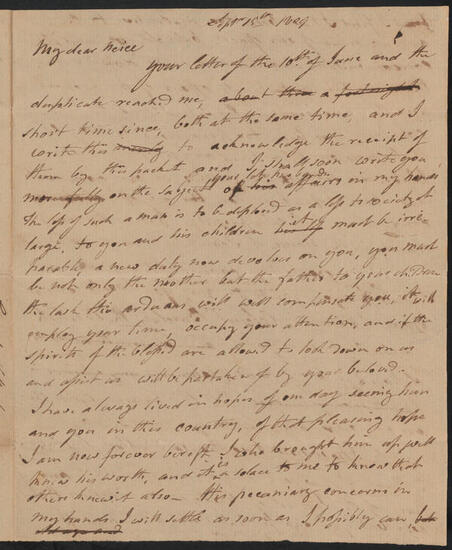 Sept 15th 1829
My dear neice
your letter of the 10th of June and the
duplicate reached me, about three a fortnight
short time since, both at the same time, and I
write this merely to acknowledge the receipt of
them by this packet and I shall soon write you
more fully on the subject of his your late husbands affairs in my hands
The loss of such a man is to be deplored as a loss to society at
large, to you and his children it must be irre-
parable, a new duty now devolves on you, you must
be not only the mother but the father to your children
the task tho arduous will well compensate you, it will
employ your time, occupy your attention, and if the
spirits of the blessed are allowed to look down on us
and assist us will be partaken of by your beloved.
I have always lived in hopes of one day seeing him
and you in this country, of that pleasing hope
I am now forever bereft, I who brought him up, well
knew his worth, and it is a solace to me to know that
others knew it also - The pecuniary concerns in
my hands I will settle as soon as I possibly can, but